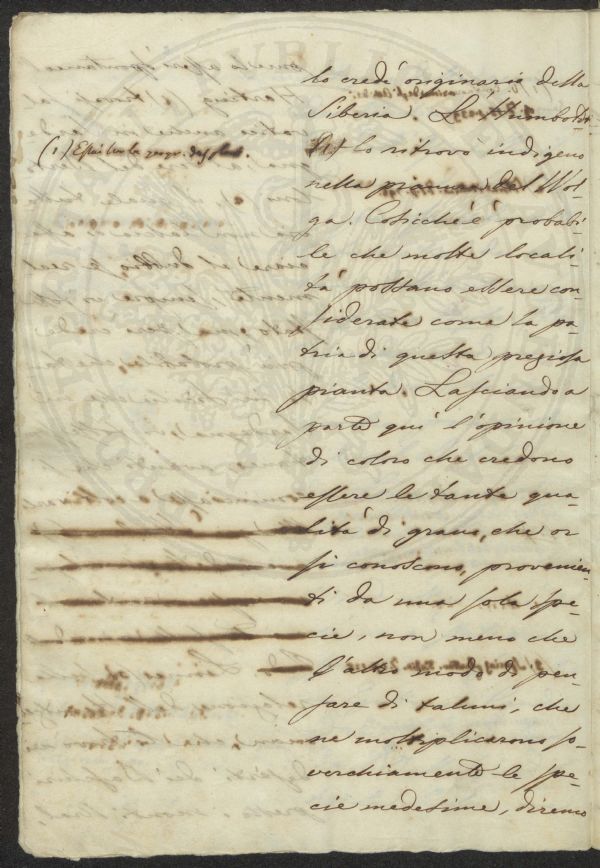 lo credè originario della
Siberia. L'Humboldt
(1) lo ritrovò indigeno
nella del Wol-
ga. Cosicchè è probabi-
le che molte locali-
tà possano essere con-
siderate come la pa-
tria di questa pregiosa
pianta. Lasciando a
parte quì l'opinione
di coloro che credono
essere le tante qua-
lità di grano, che or
si conoscono, provenien-
ti da una sola spe-
cie, non meno che
l'altro modo di pen-
sare di taluni, che
ne moltiplicarono so-
verchiamente le spe-
cie medesime, diremo
(1) Essai sur la geogr. des